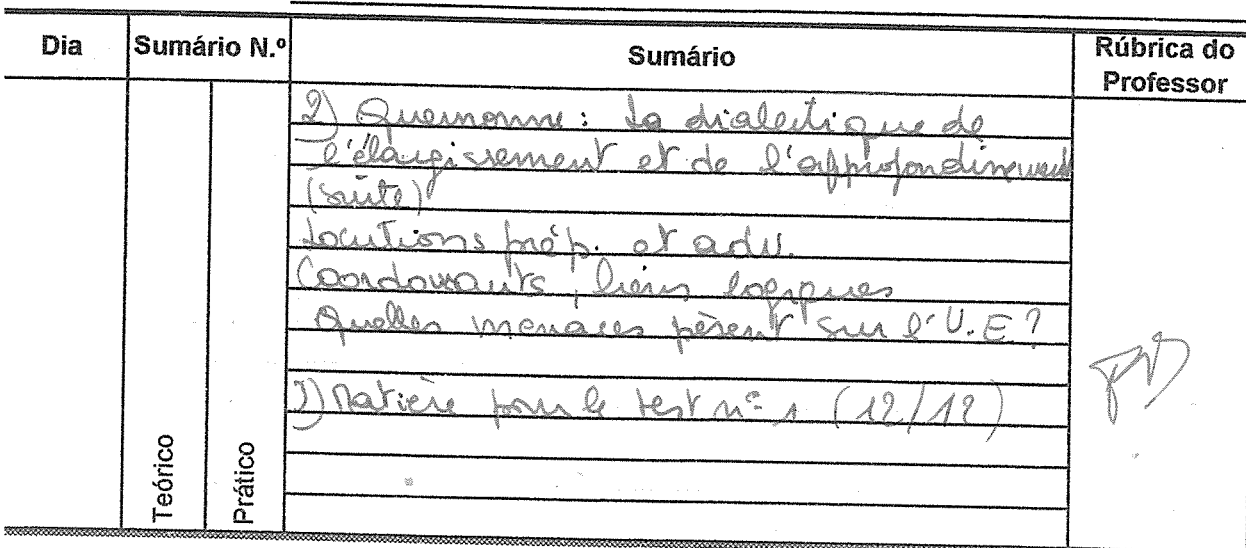 Dia Sumário N.º Sumário Rúbrica do Professor
2) Quermonne: La dialectique de
l'élargissement et de l'approfondissement
(suite)
Locutions prép. et adv.
Coordonnants, liens logiques
Quelles menaces pèsent sur l'U.E?
3) Matière pour le test nº 1 (12/12)
Teórico
Prático